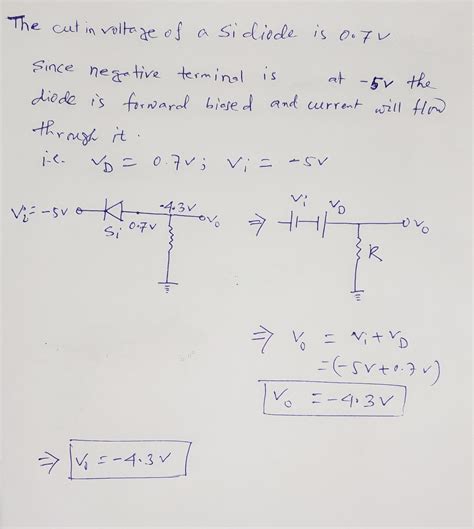 The cut in voltage of a Si diode is 0.7V
Since negative terminal is at -5V the
diode is forward biased and current will flow
through it.
i.e. VD = 0.7V; Vi = -5V
Vi=-5V -4.3V Vo
Si 0.7V
⇒ Vi VD Vo
R
⇒ Vo = Vi + VD
= (-5V+0.7V)
Vo = -4.3V
⇒ Vo = -4.3V